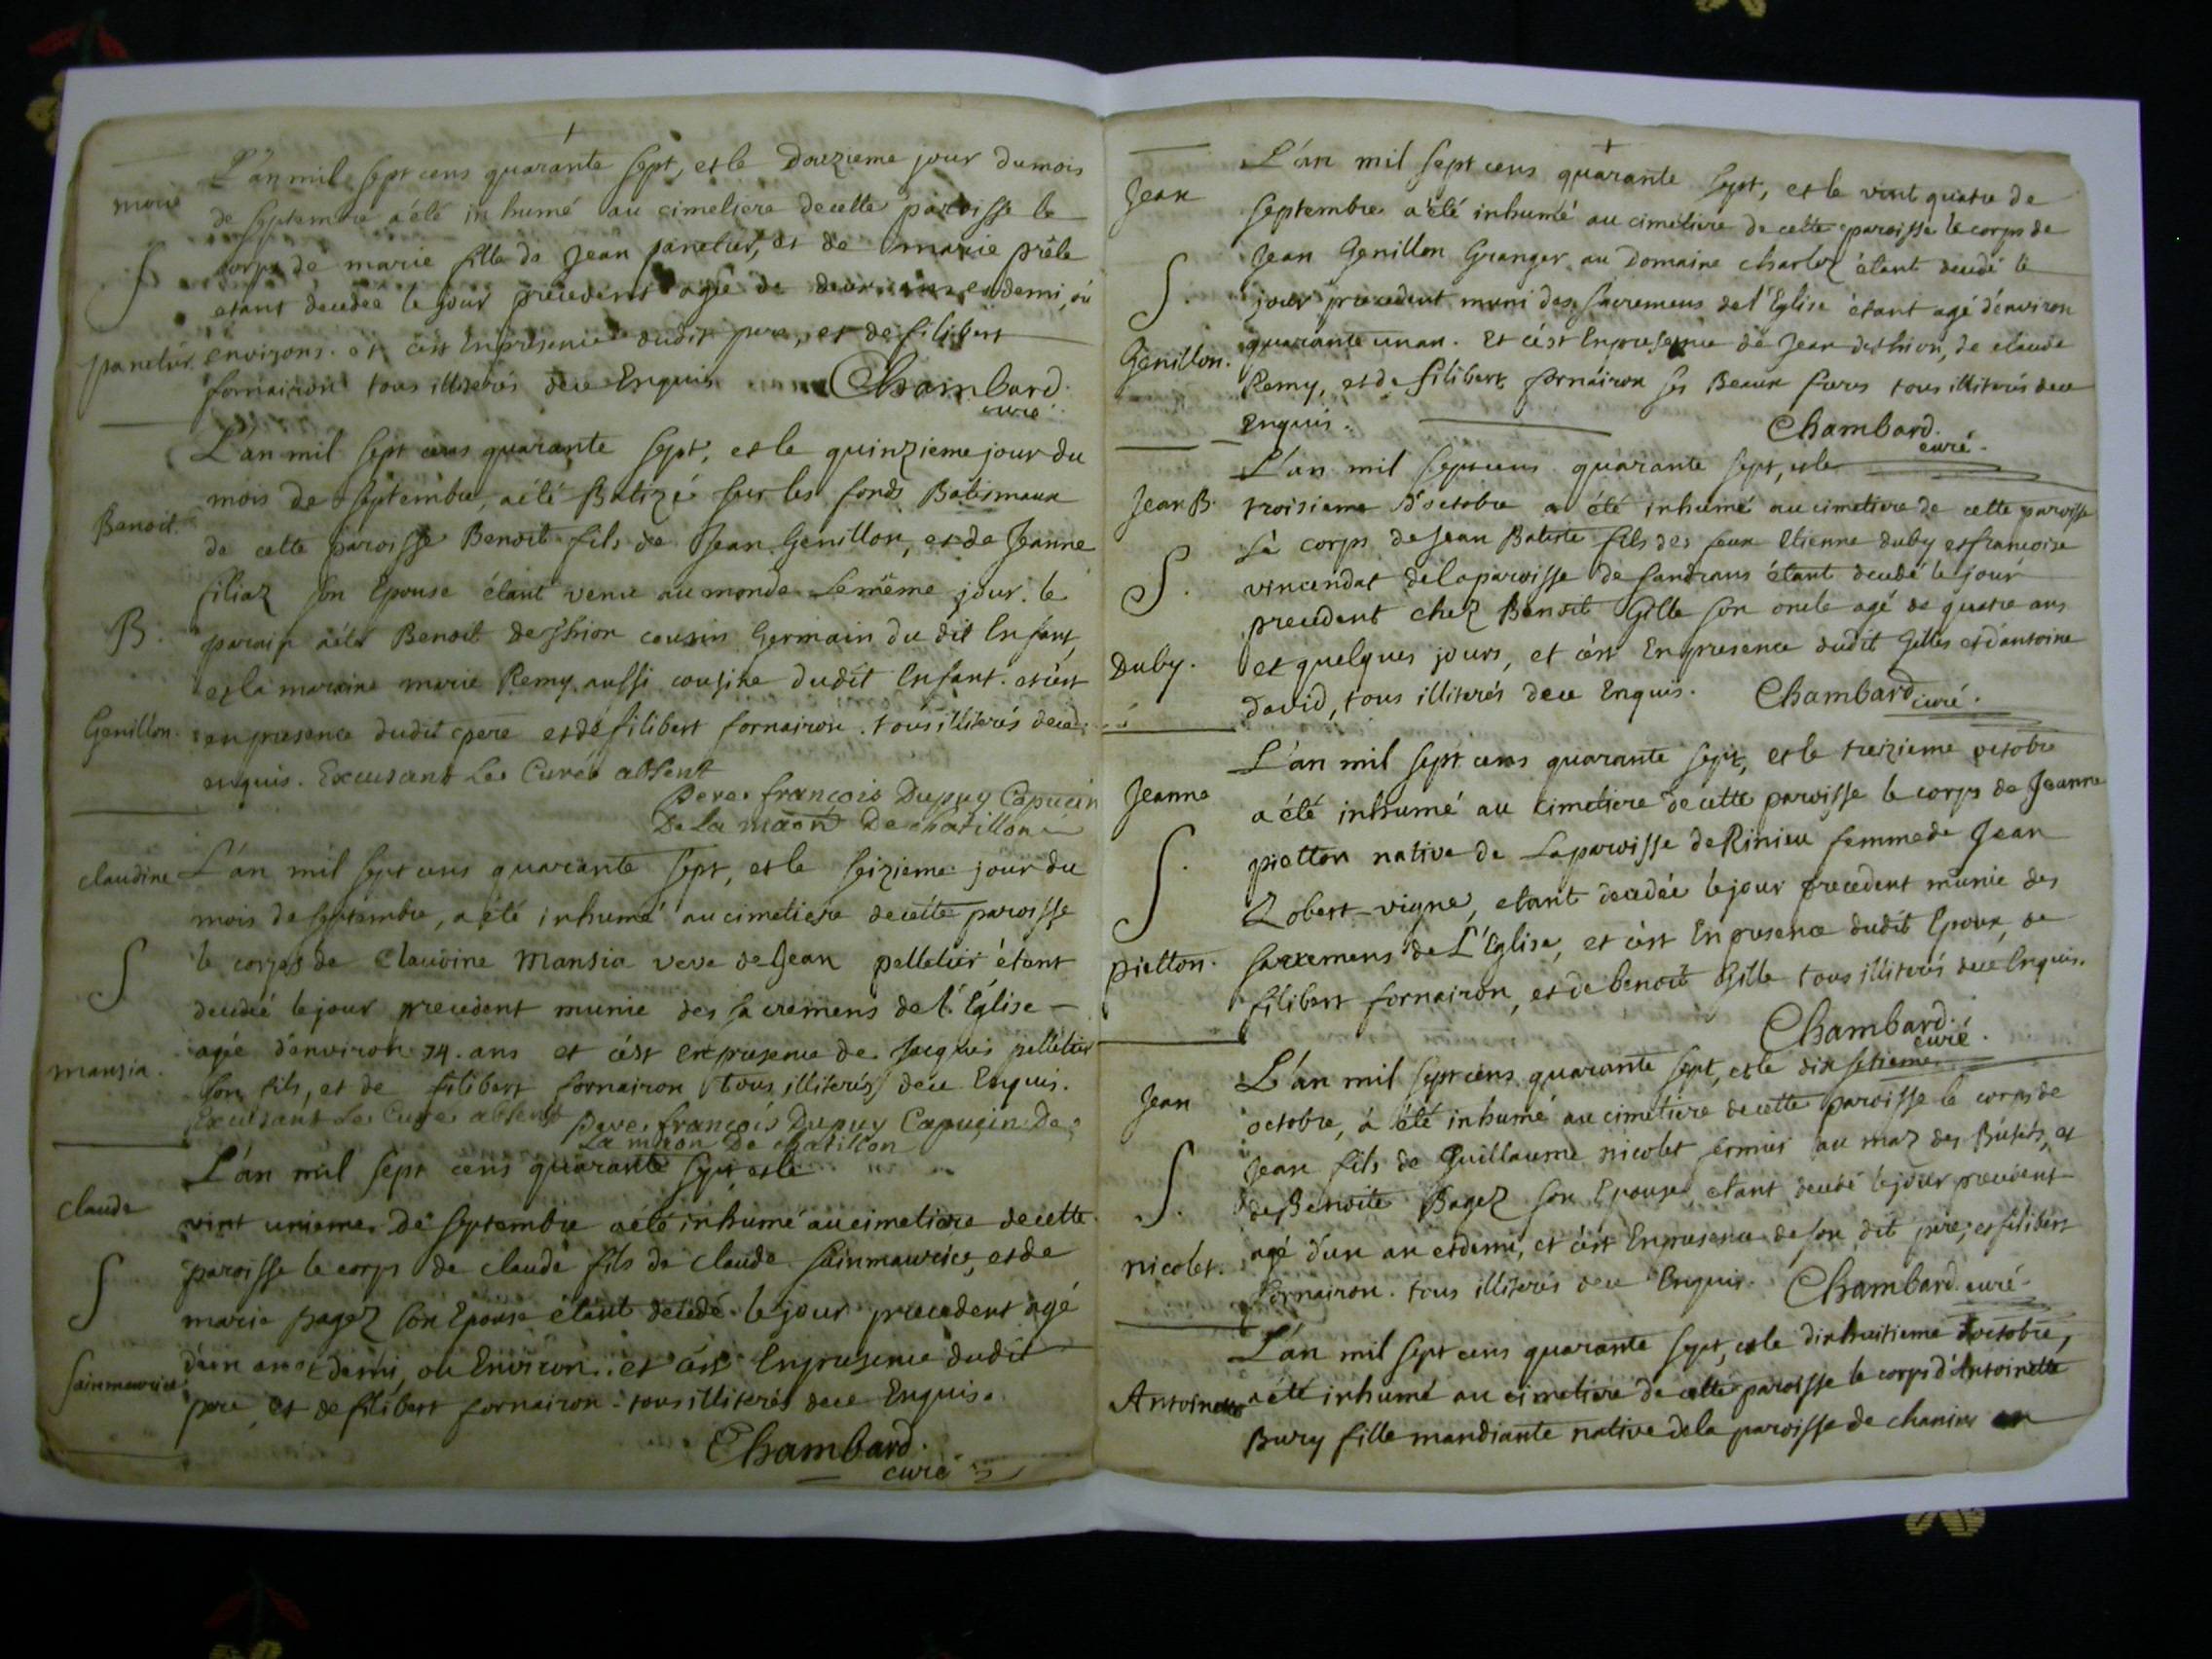 L'an mil sept cens quarante sept, et le Douzieme jour du mois
marie
de septembre a été inhumé au cimetiere de cette paroisse le
corps de marie fille de Jean panetier, et de marie prêle
S
etant decedée le jour precedent agé de deux ans et demi, ou
panetier
environs. et c'est En presence dudit pere, et de filibert
fornairon tous illiterés de ce Enquis
Chambard
curé
L'an mil sept cens quarante sept, et le quinzieme jour du
mois de septembre, a été Batizé sur les fonds Batismaux
Benoit.
de cette paroisse Benoit fils de Jean Genillon, et de Jeanne
filiaz son Epouse étant venu au monde le même jour. le
B.
parain a été Benoit cousin Germain du dit Enfant,
et la maraine marie Remy aussi cousine dudit Enfant. et c'est
Genillon.
en presence dudit pere et de filibert fornairon. tous illiterés de ce
enquis. Excusant Le Curé absent
Pere françois Dupuy Capucin
De La maon De chatillon
claudine
L'an mil sept cens quarante sept, et le seizieme jour du
mois de septembre, a été inhumé au cimetiere de cette paroisse
S
le corps de Claudine Mansia veve de Jean pelletier étant
decedée le jour precedent munie des sacremens de l'Eglise
agée d'environ 74. ans et c'est en presence de Jacques pelletier
mansia.
son fils, et de filibert fornairon tous illiterés de ce Enquis.
Excusant Le Curé absent Pere françois Dupuy Capucin De
La maon De chatillon
L'an mil sept cens quarante sept, et le
claude
vint unieme de septembre a été inhumé au cimetiere de cette
S
paroisse le corps de claude fils de claude sainmaurice, et de
marie pagez son Epouse étant decedé le jour precedent agé
sainmaurice
d'un an et demi, ou Environ. et c'est En presence dudit
pere, et de filibert fornairon. tous illiterés de ce Enquis.
Chambard.
curé
L'an mil sept cens quarante sept, et le vint quatre de
Jean
septembre a été inhumé au cimetiere de cette paroisse le corps de
Jean Genillon Granger au Domaine charlez étant decedé le
S.
jour precedent muni des sacremens de l'Eglise étant agé d'environ
Genillon.
quarante un an. Et c'est En presence de Jean de claude
Remy, et de filibert fornairon ses Beaux freres tous illiterés de ce
Enquis.
Chambard.
curé.
L'an mil sept cens quarante sept, et le
Jean B.
troisieme d'octobre a été inhumé au cimetiere de cette paroisse
Le corps de Jean Batiste fils des feux Etienne Duby et francoise
S.
vincendat de la paroisse de sandrans étant decedé le jour
precedent chez Benoit Gille son oncle agé de quatre ans
Duby.
et quelques jours, et c'est En presence dudit Gilles et d'antoine
David, tous illiterés de ce Enquis. Chambard curé.
L'an mil sept cens quarante sept, et le treizieme octobre
Jeanne
a été inhumé au cimetiere de cette paroisse le corps de Jeanne
pietton native de La paroisse de Rinieu femme de Jean
S.
Robert-vigne, etant decedée le jour precedent munie des
pietton.
sacremens de L'Eglise, et c'est En presence dudit Epoux, de
filibert fornairon, et de benoit Gille tous illiterés de ce Enquis.
Chambard.
curé.
L'an mil sept cens quarante sept, et le dix setieme
Jean
octobre, a été inhumé au cimetiere de cette paroisse le corps de
Jean fils de Guillaume nicolet fermier au maz des et
S.
de Benoite Bagez son Epouse etant decedé le jour precedent
nicolet.
agé d'un an et demi, et c'est En presence de son dit pere, et filibert
fornairon. tous illiterés de ce Enquis. Chambard curé
L'an mil sept cens quarante sept, et le dixhuitieme d'octobre,
Antoinette
a été inhumé au cimetiere de cette paroisse le corps d'Antoinette
Bury fille mandiante native de la paroisse de